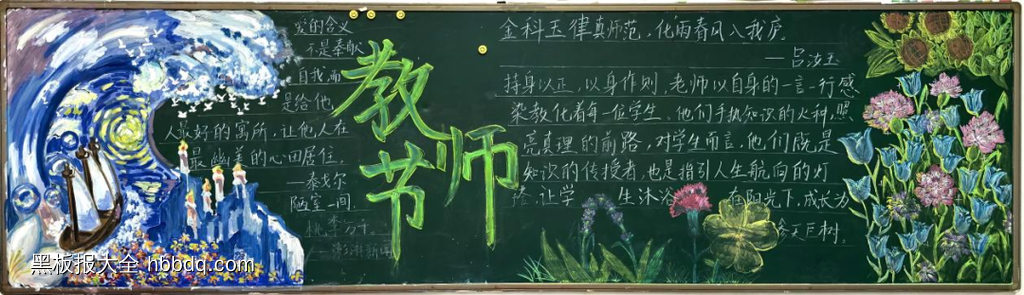 爱的含义
不是奉献
自我，而
是给他
人最好的寓所，让他人在
最幽美的心田居住。
——泰戈尔
陋室一间，
桃李万千。
教师节
金科玉律真师范，化雨春风入我庐
——吕汝玉
持身以正，以身作则，老师以自身的一言一行感
染教化着每一位学生。他们手执知识的火种，照
亮真理的前路，对学生而言，他们既是
知识的传授者，也是指引人生航向的灯
塔，让学生沐浴在阳光下，成长为
参天巨树。
黑板报大全 hbbdq.com